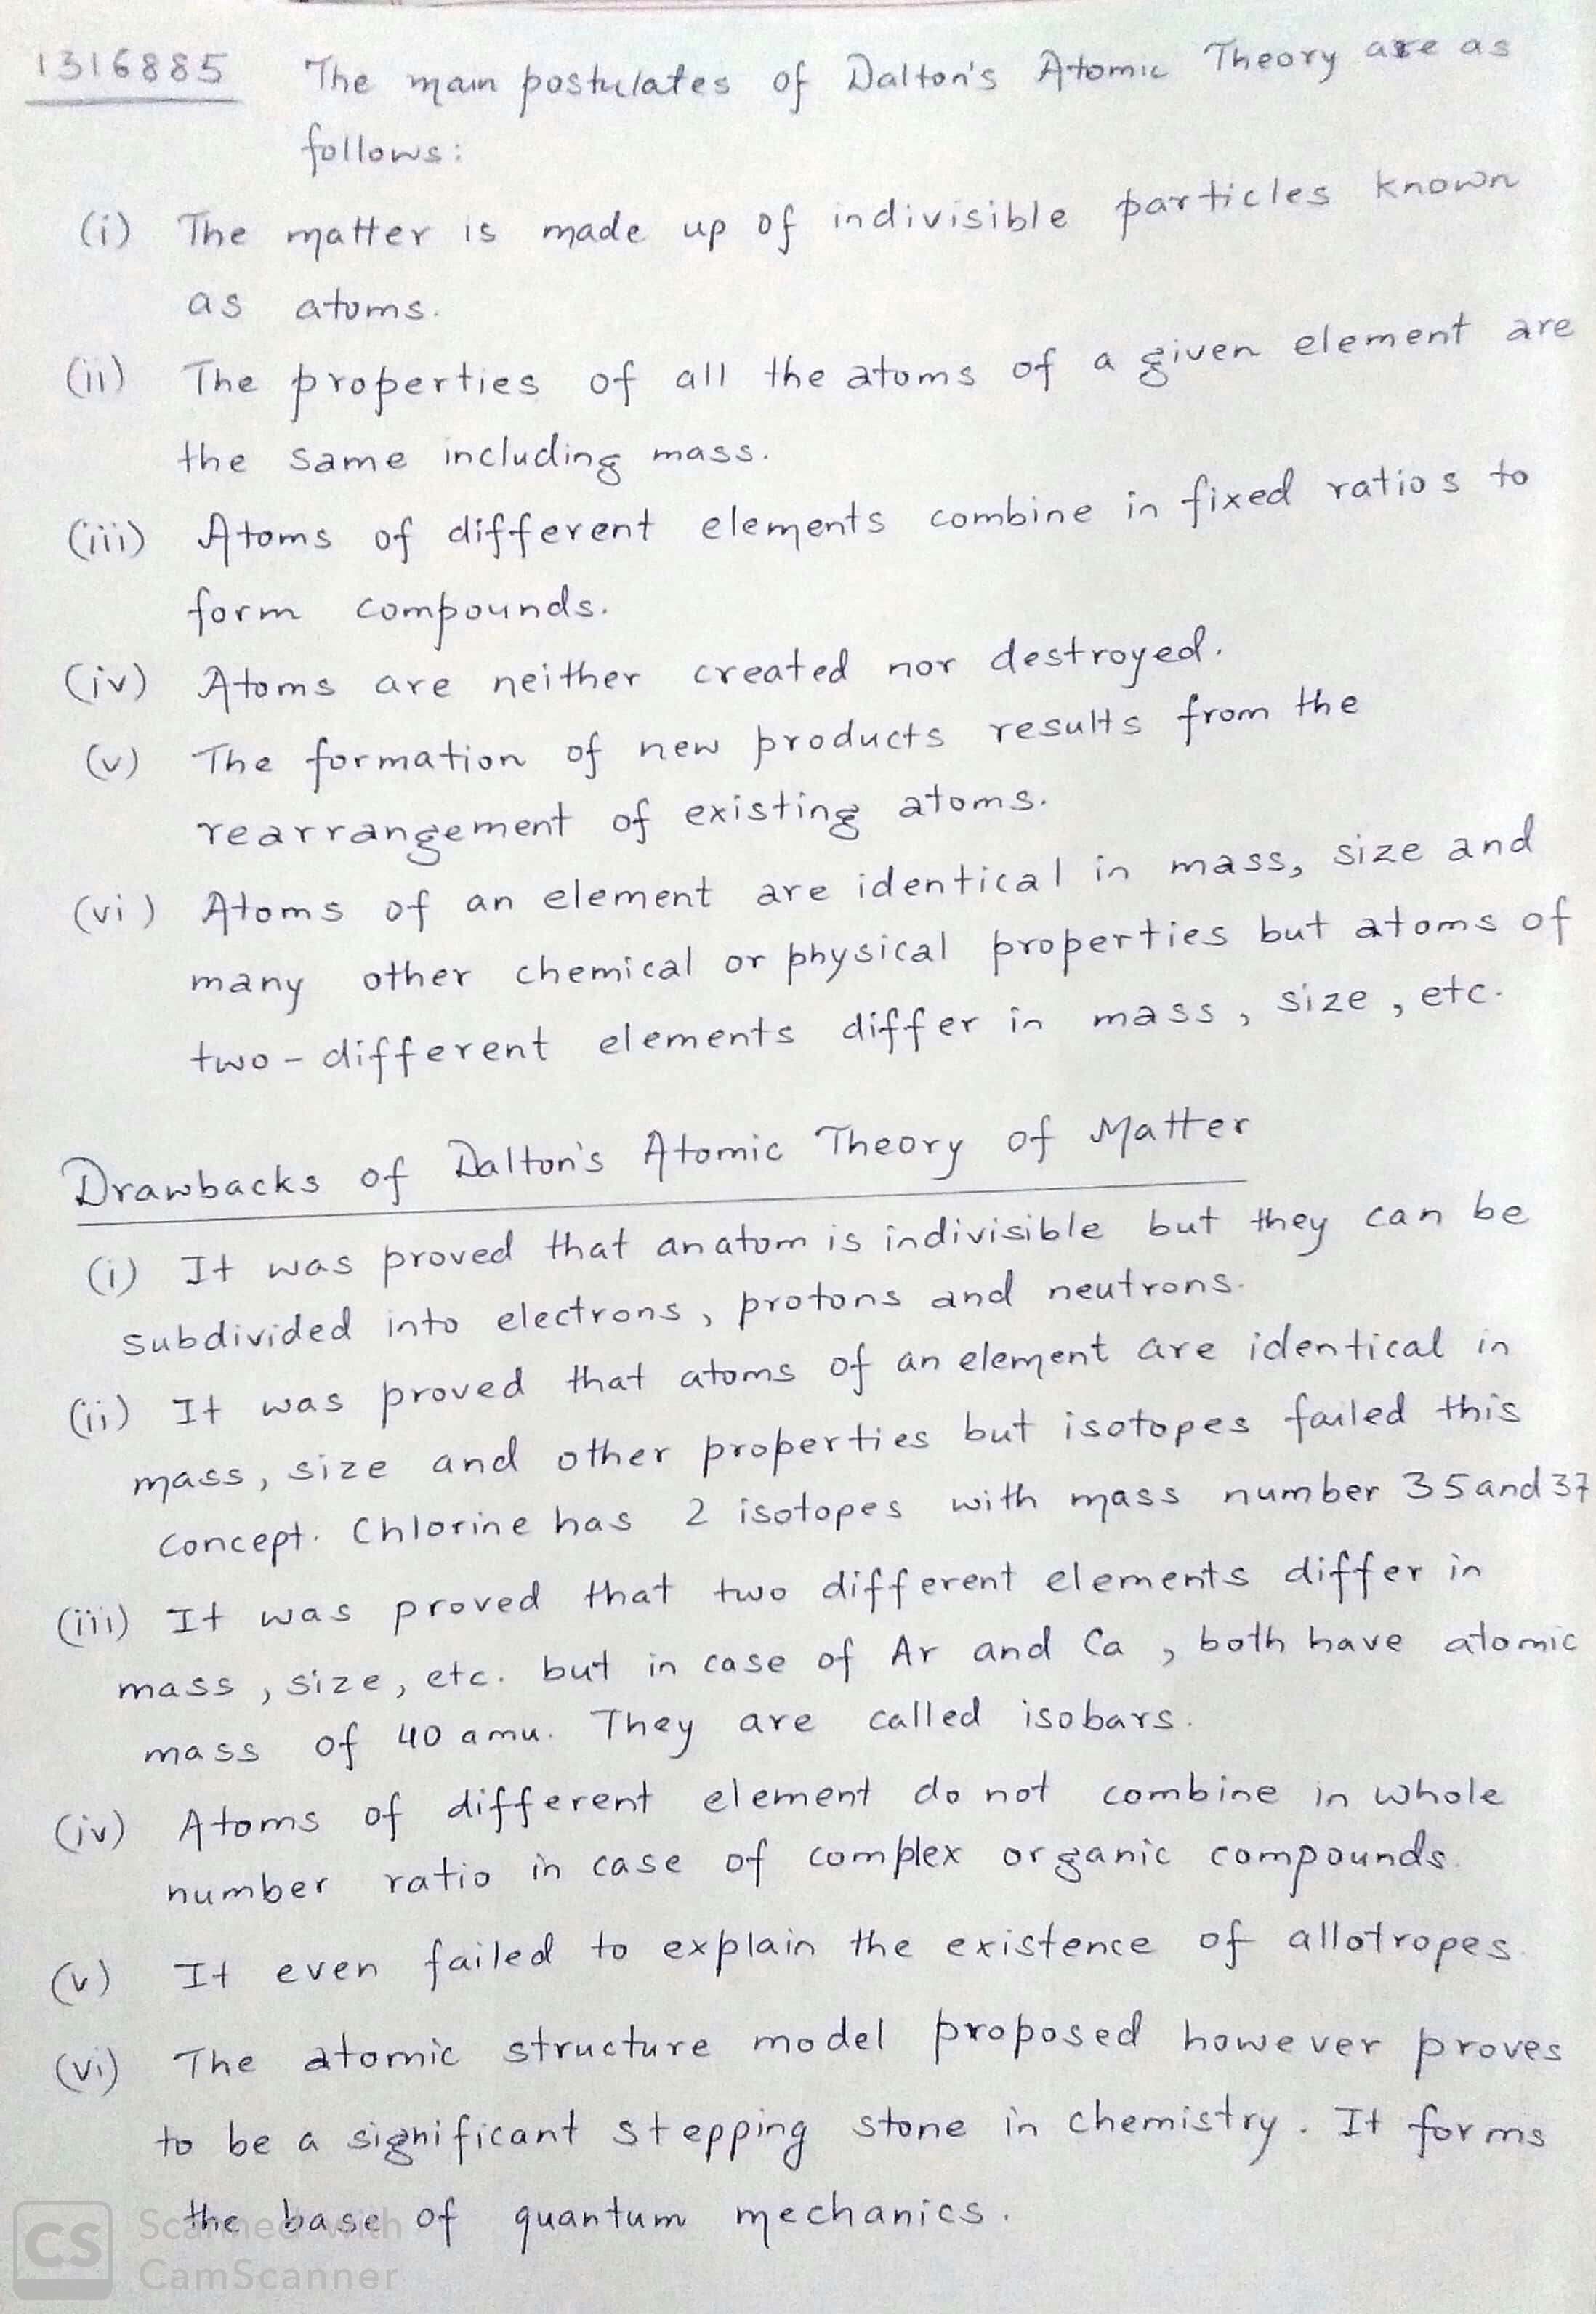 1316885 The main postulates of Dalton's Atomic Theory are as
follows:
(i) The matter is made up of indivisible particles known
as atoms.
(ii) The properties of all the atoms of a given element are
the same including mass.
(iii) Atoms of different elements combine in fixed ratios to
form compounds.
(iv) Atoms are neither created nor destroyed.
(v) The formation of new products results from the
rearrangement of existing atoms.
(vi) Atoms of an element are identical in mass, size and
many other chemical or physical properties but atoms of
two-different elements differ in mass, size, etc.
Drawbacks of Dalton's Atomic Theory of Matter
(i) It was proved that an atom is indivisible but they can be
subdivided into electrons, protons and neutrons.
(ii) It was proved that atoms of an element are identical in
mass, size and other properties but isotopes failed this
concept. Chlorine has 2 isotopes with mass number 35 and 37
(iii) It was proved that two different elements differ in
mass, size, etc. but in case of Ar and Ca, both have atomic
mass of 40 amu. They are called isobars.
(iv) Atoms of different element do not combine in whole
number ratio in case of complex organic compounds.
(v) It even failed to explain the existence of allotropes.
(vi) The atomic structure model proposed however proves
to be a significant stepping stone in chemistry. It forms
the base of quantum mechanics.
CS Scanned with
CamScanner